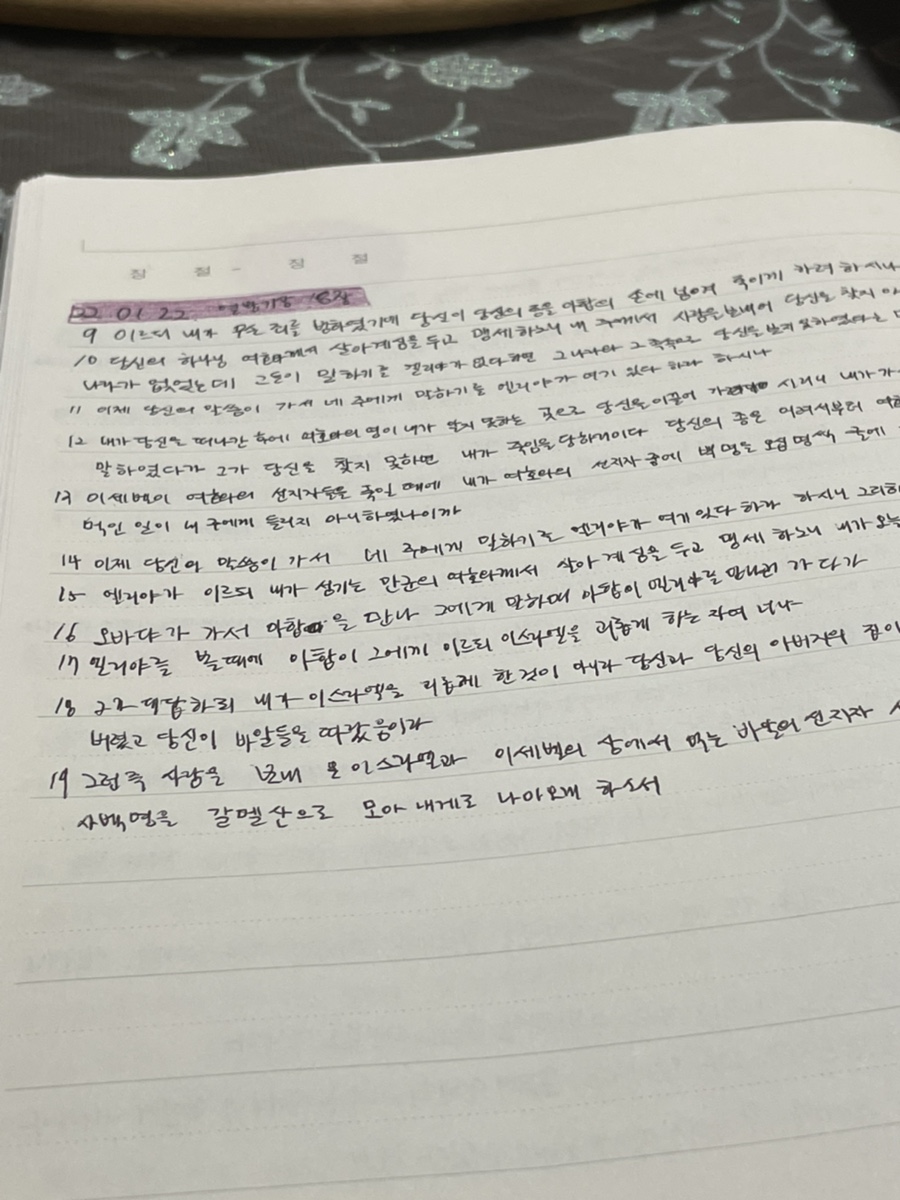 장 절 - 장 절
22 01 22 열왕기상 18장
9 이르되 내가 무슨 죄를 범하였기에 당신이 당신의 종을 아합의 손에 넘겨 죽이게 하려 하시나
10 당신의 하나님 여호와께서 살아계심을 두고 맹세하노니 내 주께서 사람을 보내어 당신을 찾지 아
나라가 없었는데 그들이 말하기를 엘리야가 없다 하면 그 나라와 그 족속으로 당신을 보지 못하였다는
11 이제 당신의 말씀이 가서 네 주에게 말하기를 엘리야가 여기 있다 하라 하시나
12 내가 당신을 떠나간 후에 여호와의 영이 내가 알지 못하는 곳으로 당신을 이끌어 시리니 내가 가
말하였다가 그가 당신을 찾지 못하면 내가 죽임을 당하리이다 당신의 종은 어려서부터 여호
13 이세벨이 여호와의 선지자들을 죽일 때에 내가 여호와의 선지자 중에 백 명을 오십 명씩 굴에
먹인 일이 내 주에게 들리지 아니하였나이까
14 이제 당신의 말씀이 가서 네 주에게 말하기를 엘리야가 여기 있다 하라 하시니 그리하
15 엘리야가 이르되 내가 섬기는 만군의 여호와께서 살아 계심을 두고 맹세하노니 내가 오늘
16 오바댜가 가서 아합을 만나 그에게 말하매 아합이 엘리야를 만나려 가다가
17 엘리야를 볼 때에 아합이 그에게 이르되 이스라엘을 괴롭게 하는 자여 너냐
18 그가 대답하되 내가 이스라엘을 괴롭게 한 것이 아니라 당신과 당신의 아버지의 집이
버렸고 당신이 바알들을 따랐음이라
19 그런즉 사람을 보내 온 이스라엘과 이세벨의 상에서 먹는 바알의 선지자 사
사백 명을 갈멜 산으로 모아 내게로 나아오게 하소서